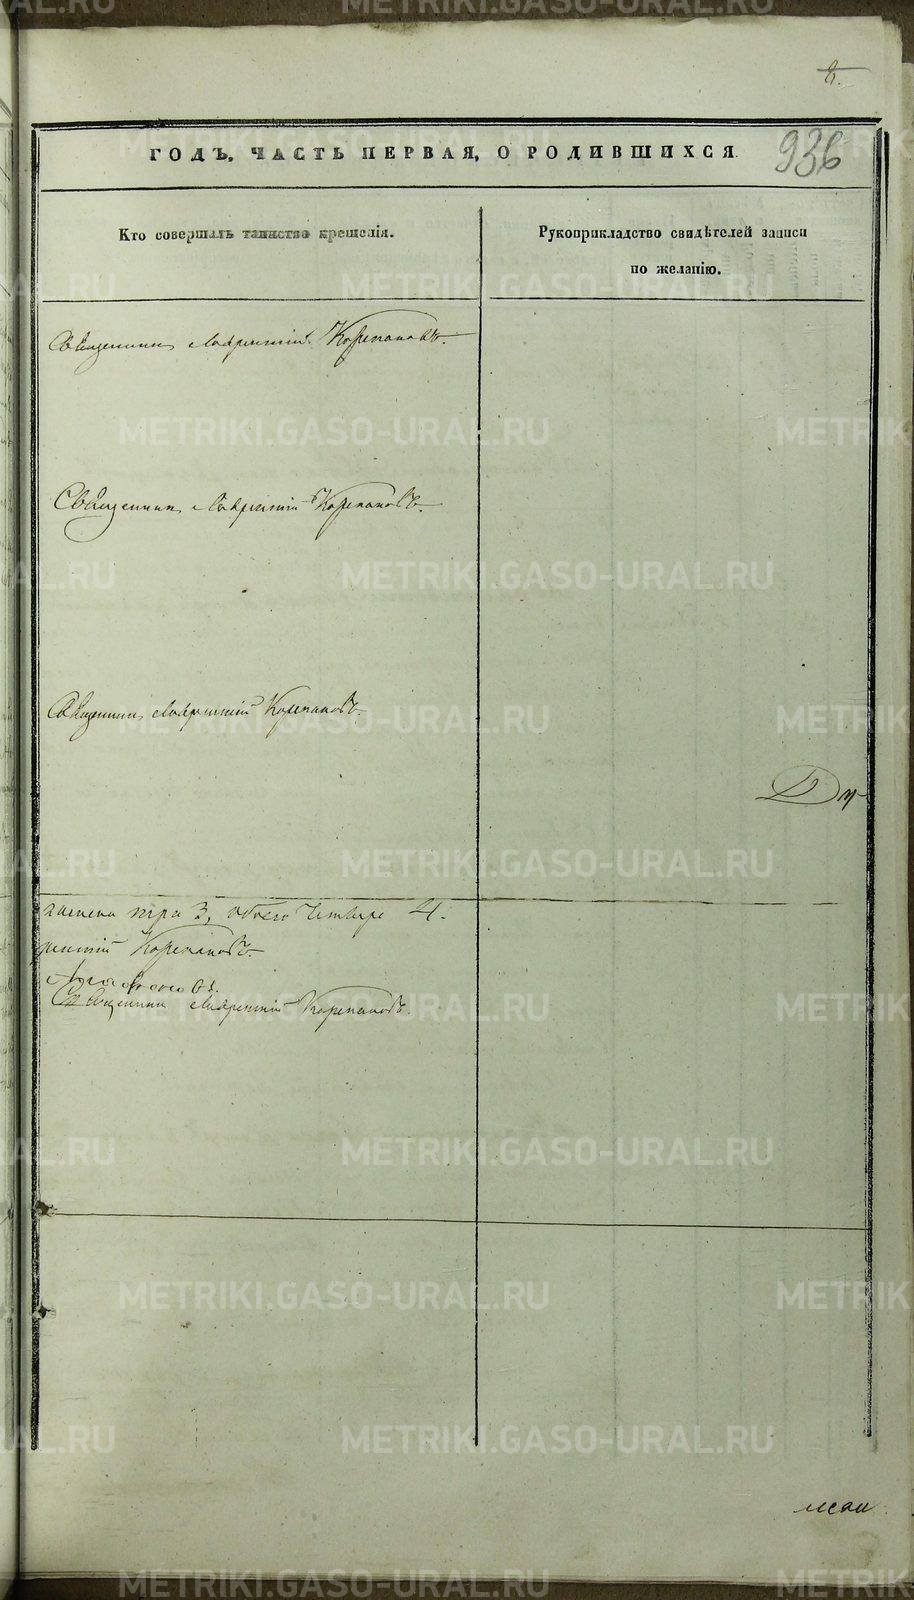 2.
936
ГОДЪ, ЧАСТЬ ПЕРВАЯ, О РОДИВШИХСЯ
Кто совершалъ таинство крещенія.
Рукоприкладство свидѣтелей записи
по желанію.
Священникъ Лаврентій Корепановъ.
Священникъ Лаврентій Корепановъ.
Священникъ Лаврентій Корепановъ.
женска три 3, обоего Четыре 4.
рентій Корепановъ.
Священникъ Лаврентій Корепановъ.
METRIKI.GASO-URAL.RU